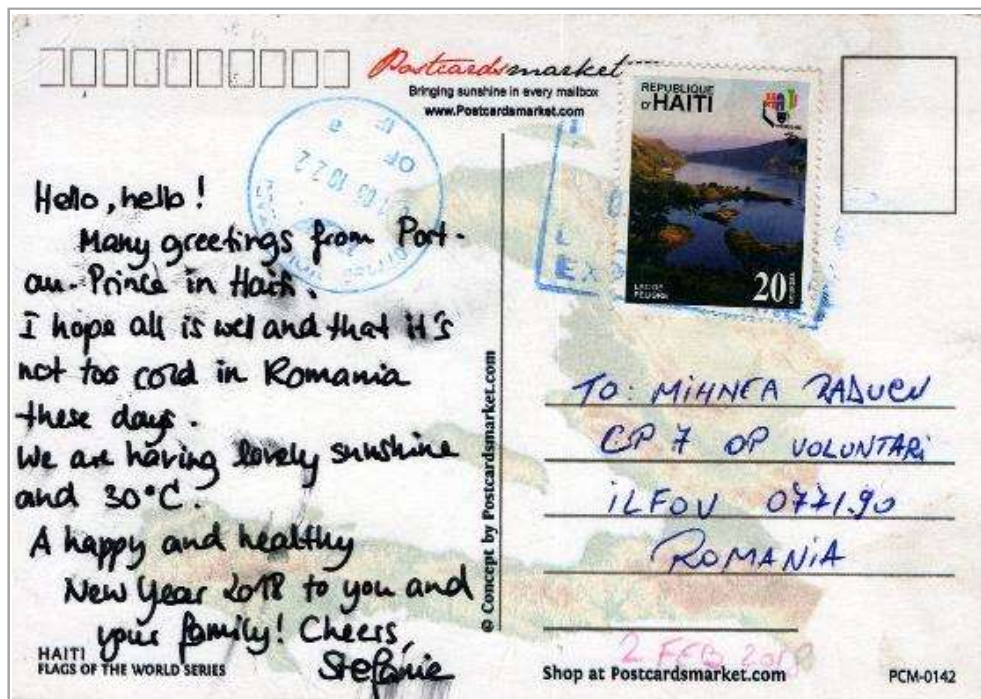 Postcardsmarket
Bringing sunshine in every mailbox
www.Postcardsmarket.com
REPUBLIQUE
D'HAITI
LAC DE
PELIGRE
20
GOURDES
Hello, hello!
Many greetings from Port-
au-Prince in Haiti.
I hope all is well and that it's
not too cold in Romania
these days.
We are having lovely sunshine
and 30°C.
A happy and healthy
New Year 2018 to you and
your family! Cheers,
Stefanie
HAITI
FLAGS OF THE WORLD SERIES
© Concept by Postcardsmarket.com
TO: MIHNEA RADUCU
CP 7 OP VOLUNTARI
ILFOV 077190
ROMANIA
2 FEB 2018
Shop at Postcardsmarket.com
PCM-0142